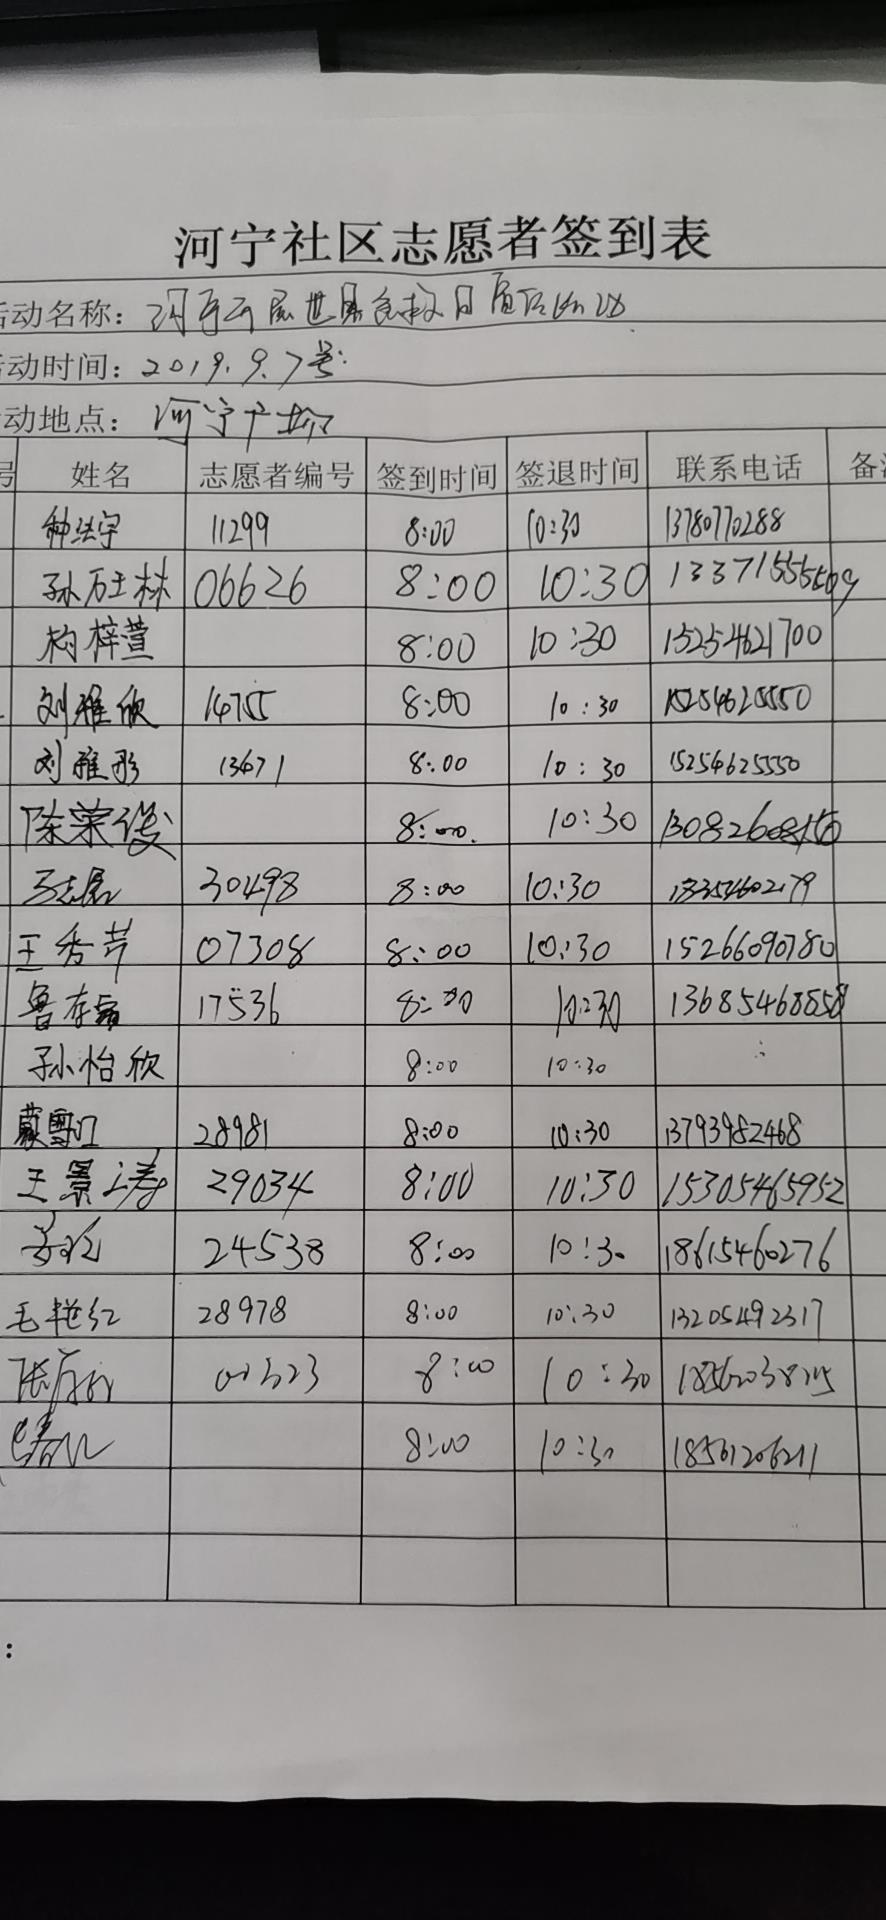 河宁社区志愿者签到表
活动名称：河宁社区世界急救日宣传
活动时间：2019.9.7号
活动地点：河宁广场
号 姓名 志愿者编号 签到时间 签退时间 联系电话 备注
11299 8:00 10:30 13780770288
06626 8:00 10:30
梓萱 8:00 10:30 15254621700
刘雅欣 14755 8:00 10:30 15254625550
刘雅彤 13671 8:00 10:30 15254625550
陈荣俊 8:00 10:30
30498 8:00 10:30
王秀芹 07308 8:00 10:30 15266090780
鲁存 17536 8:00 10:30 13685468858
孙怡欣 8:00 10:30
28981 8:00 10:30 13793982468
王景涛 29034 8:00 10:30 15305465952
24538 8:00 10:30 18615460276
毛艳红 28978 8:00 10:30 13205492317
8:00 10:30
8:00 10:30 18561206211
：